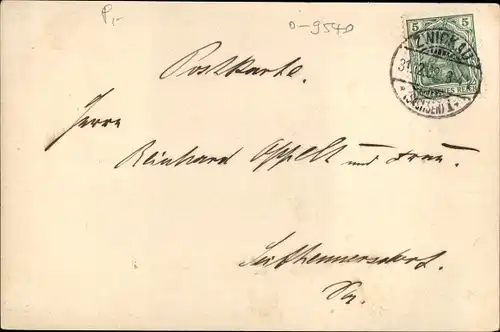 P,-
D-9540
5
ZWICKAU
31.
DEUTSCHES REICH
* (SACHSEN) 1 *
Postkarte.
Herrn
Reinhard Oppelt und Frau.
Seifhennersdorf.
Sa.